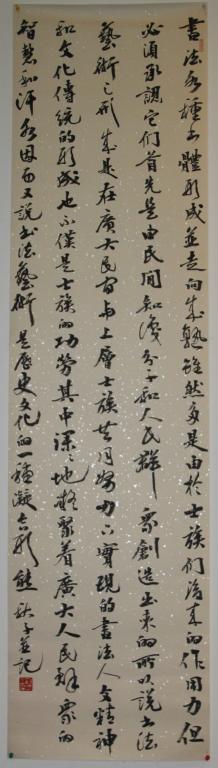 書法各種書體形成並走向成熟雖然多是由於士族們後來的作用力但
必須承認它们首先是由民間知識分子和人民群眾創造出來的所以説書法
藝術之形成是在廣大民間与上層士族共同努力下實現的書法人文精神
和文化傳統的形成也不僅是士族的功勞其中深深地凝聚着廣大人民群眾的
智慧和汗水因而又説書法藝術是歷史文化的一種凝合形態 秋子並記